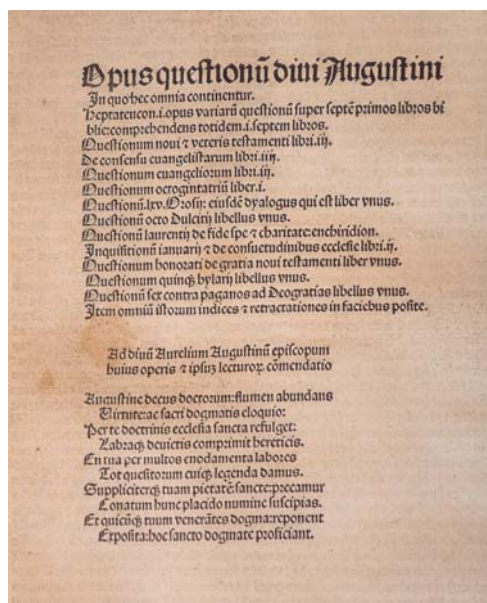 Opus questionū diui Augustini
In quo hec omnia continentur.
Heptateucon.i.opus variarū questionū super septē primos libros bi
blie:comprehendens totidem.i.septem libros.
Questionum noui ⁊ veteris testamenti libri.iij.
De consensu euangelistarum libri.iiij.
Questionum euangeliorum libri.ij.
Questionum octogintatriū liber.i.
Questionū.lxv.Orosij: eiusdē dyalogus qui est liber vnus.
Questionū octo Dulcitij libellus vnus.
Questionū laurentij de fide spe ⁊ charitate:enchiridion.
Inquisitionū ianuarij ⁊ de consuetudinibus ecclesie libri.ij.
Questionum honorati de gratia noui testamenti liber vnus.
Questionum quinqꝫ hylarij libellus vnus.
Questionū sex contra paganos ad Deogratias libellus vnus.
Item omniū istorum indices ⁊ retractationes in faciebus posite.
Ad diuū Aurelium Augustinū episcopum
huius operis ⁊ ipsuꝫ lecturoꝝ cōmendatio
Augustine decus doctorum:flumen abundans
Virtute:ac sacri dogmatis eloquio:
Per te doctrinis ecclesia sancta refulget:
Labraqꝫ deuictis comprimit hereticis.
En tua per multos enodamenta labores
Tot quesitorum cuiqꝫ legenda damus.
Suppliciterqꝫ tuam pietatē:sancte:precamur
Conatum hunc placido numine suscipias.
Et quicūqꝫ tuum venerātes dogma:reponent
Exposita:hoc sancto dogmate proficiant.